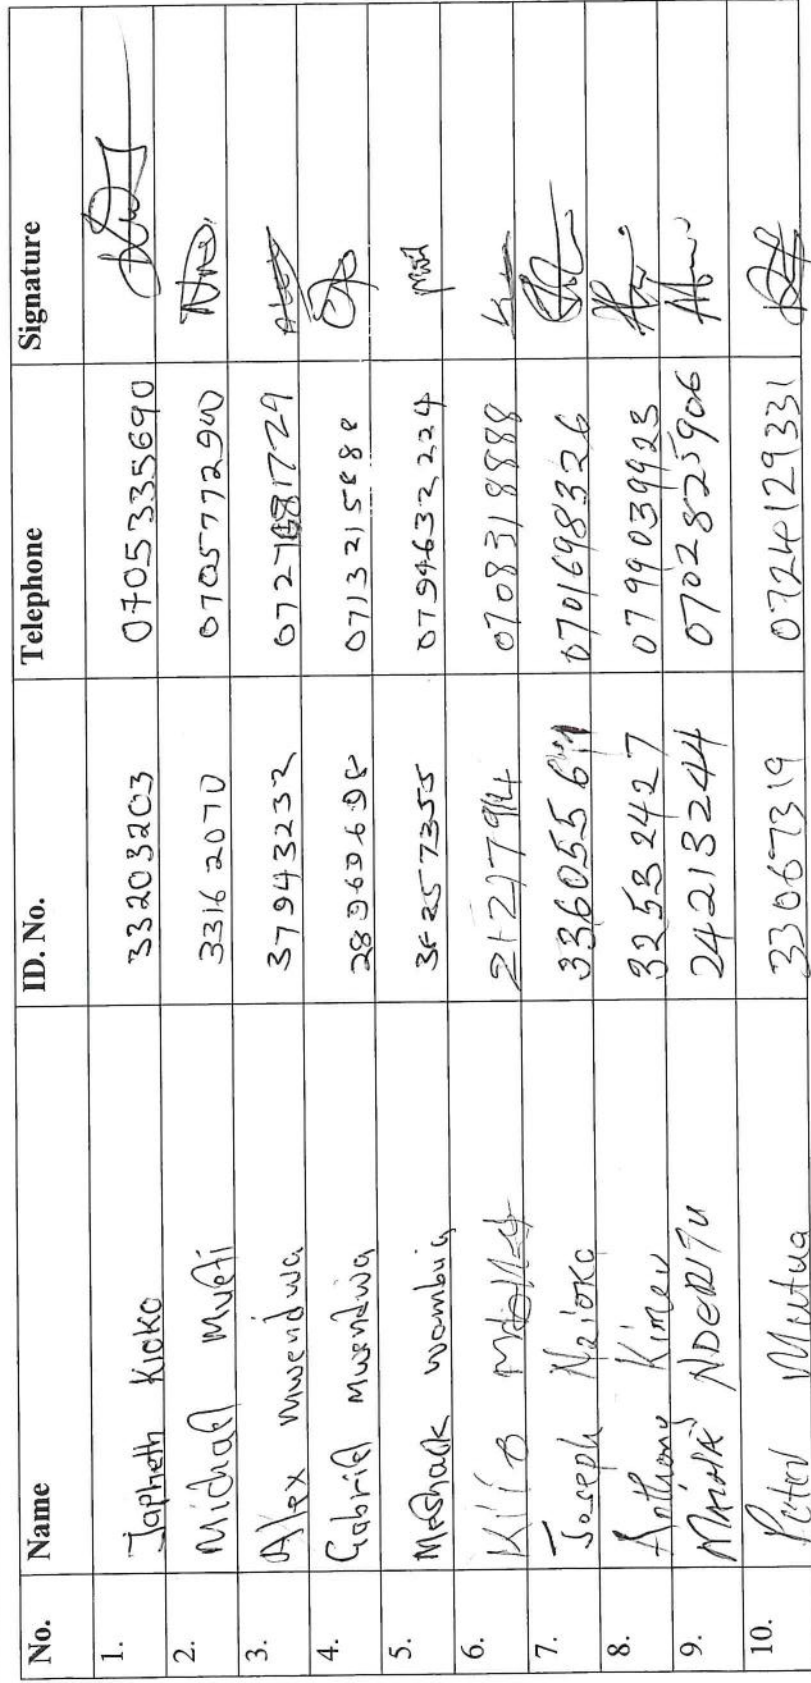 No. Name ID. No. Telephone Signature
1. Japheth Kioko 33203203 0705335690
2. Michael Mueti 33162070 0705772900
3. Alex Mwendwa 37943232
4. Gabriel Mwendwa 28969698 0713215888
5. Meshack Wambua 0794632224
6. Kiio 0708318888
7. Joseph Nzioko 0701698326
8. Anthony Kimeu 32532427 0799039923
9. MAINA NDERITU 24213244 0702825906
10. Peter Mutua 33067319 0724129331